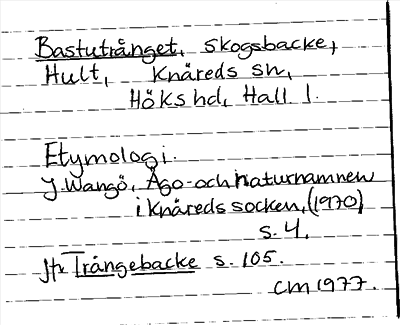 Bastutrånget, skogsbacke,
Hult, Knäreds sn,
Höks hd, Hall l.
Etymologi.
J Wangö, Ägo- och naturnamnen
i Knäreds socken, (1970)
s. 4.
Jfr Trångebacke s. 105.
CM 1977.